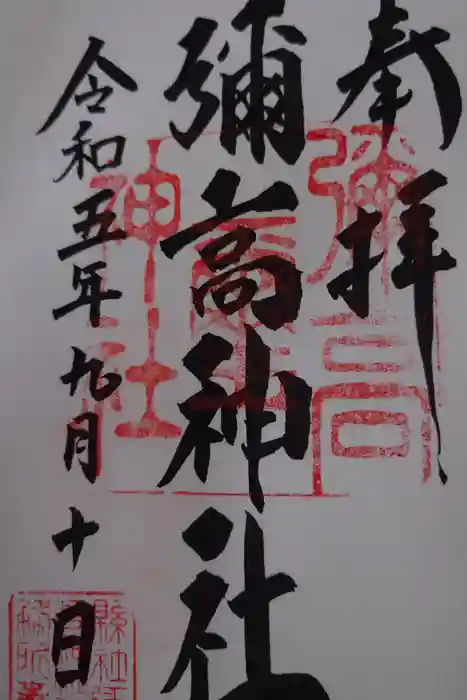 奉拝
彌高神社
令和五年九月十日
彌高
神社
縣社